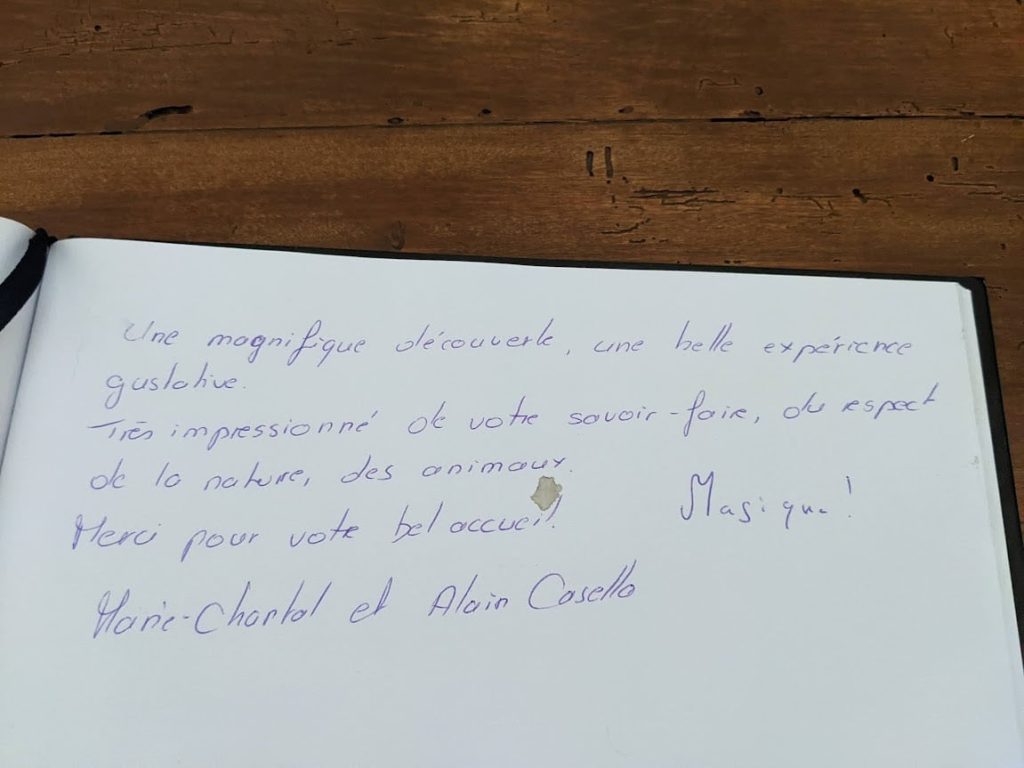 Une magnifique découverte, une belle expérience
gustative.
Très impressionné de votre savoir-faire, du respect
de la nature, des animaux.
Merci pour votre bel accueil!
Magique!
Marie-Chantal et Alain Casella